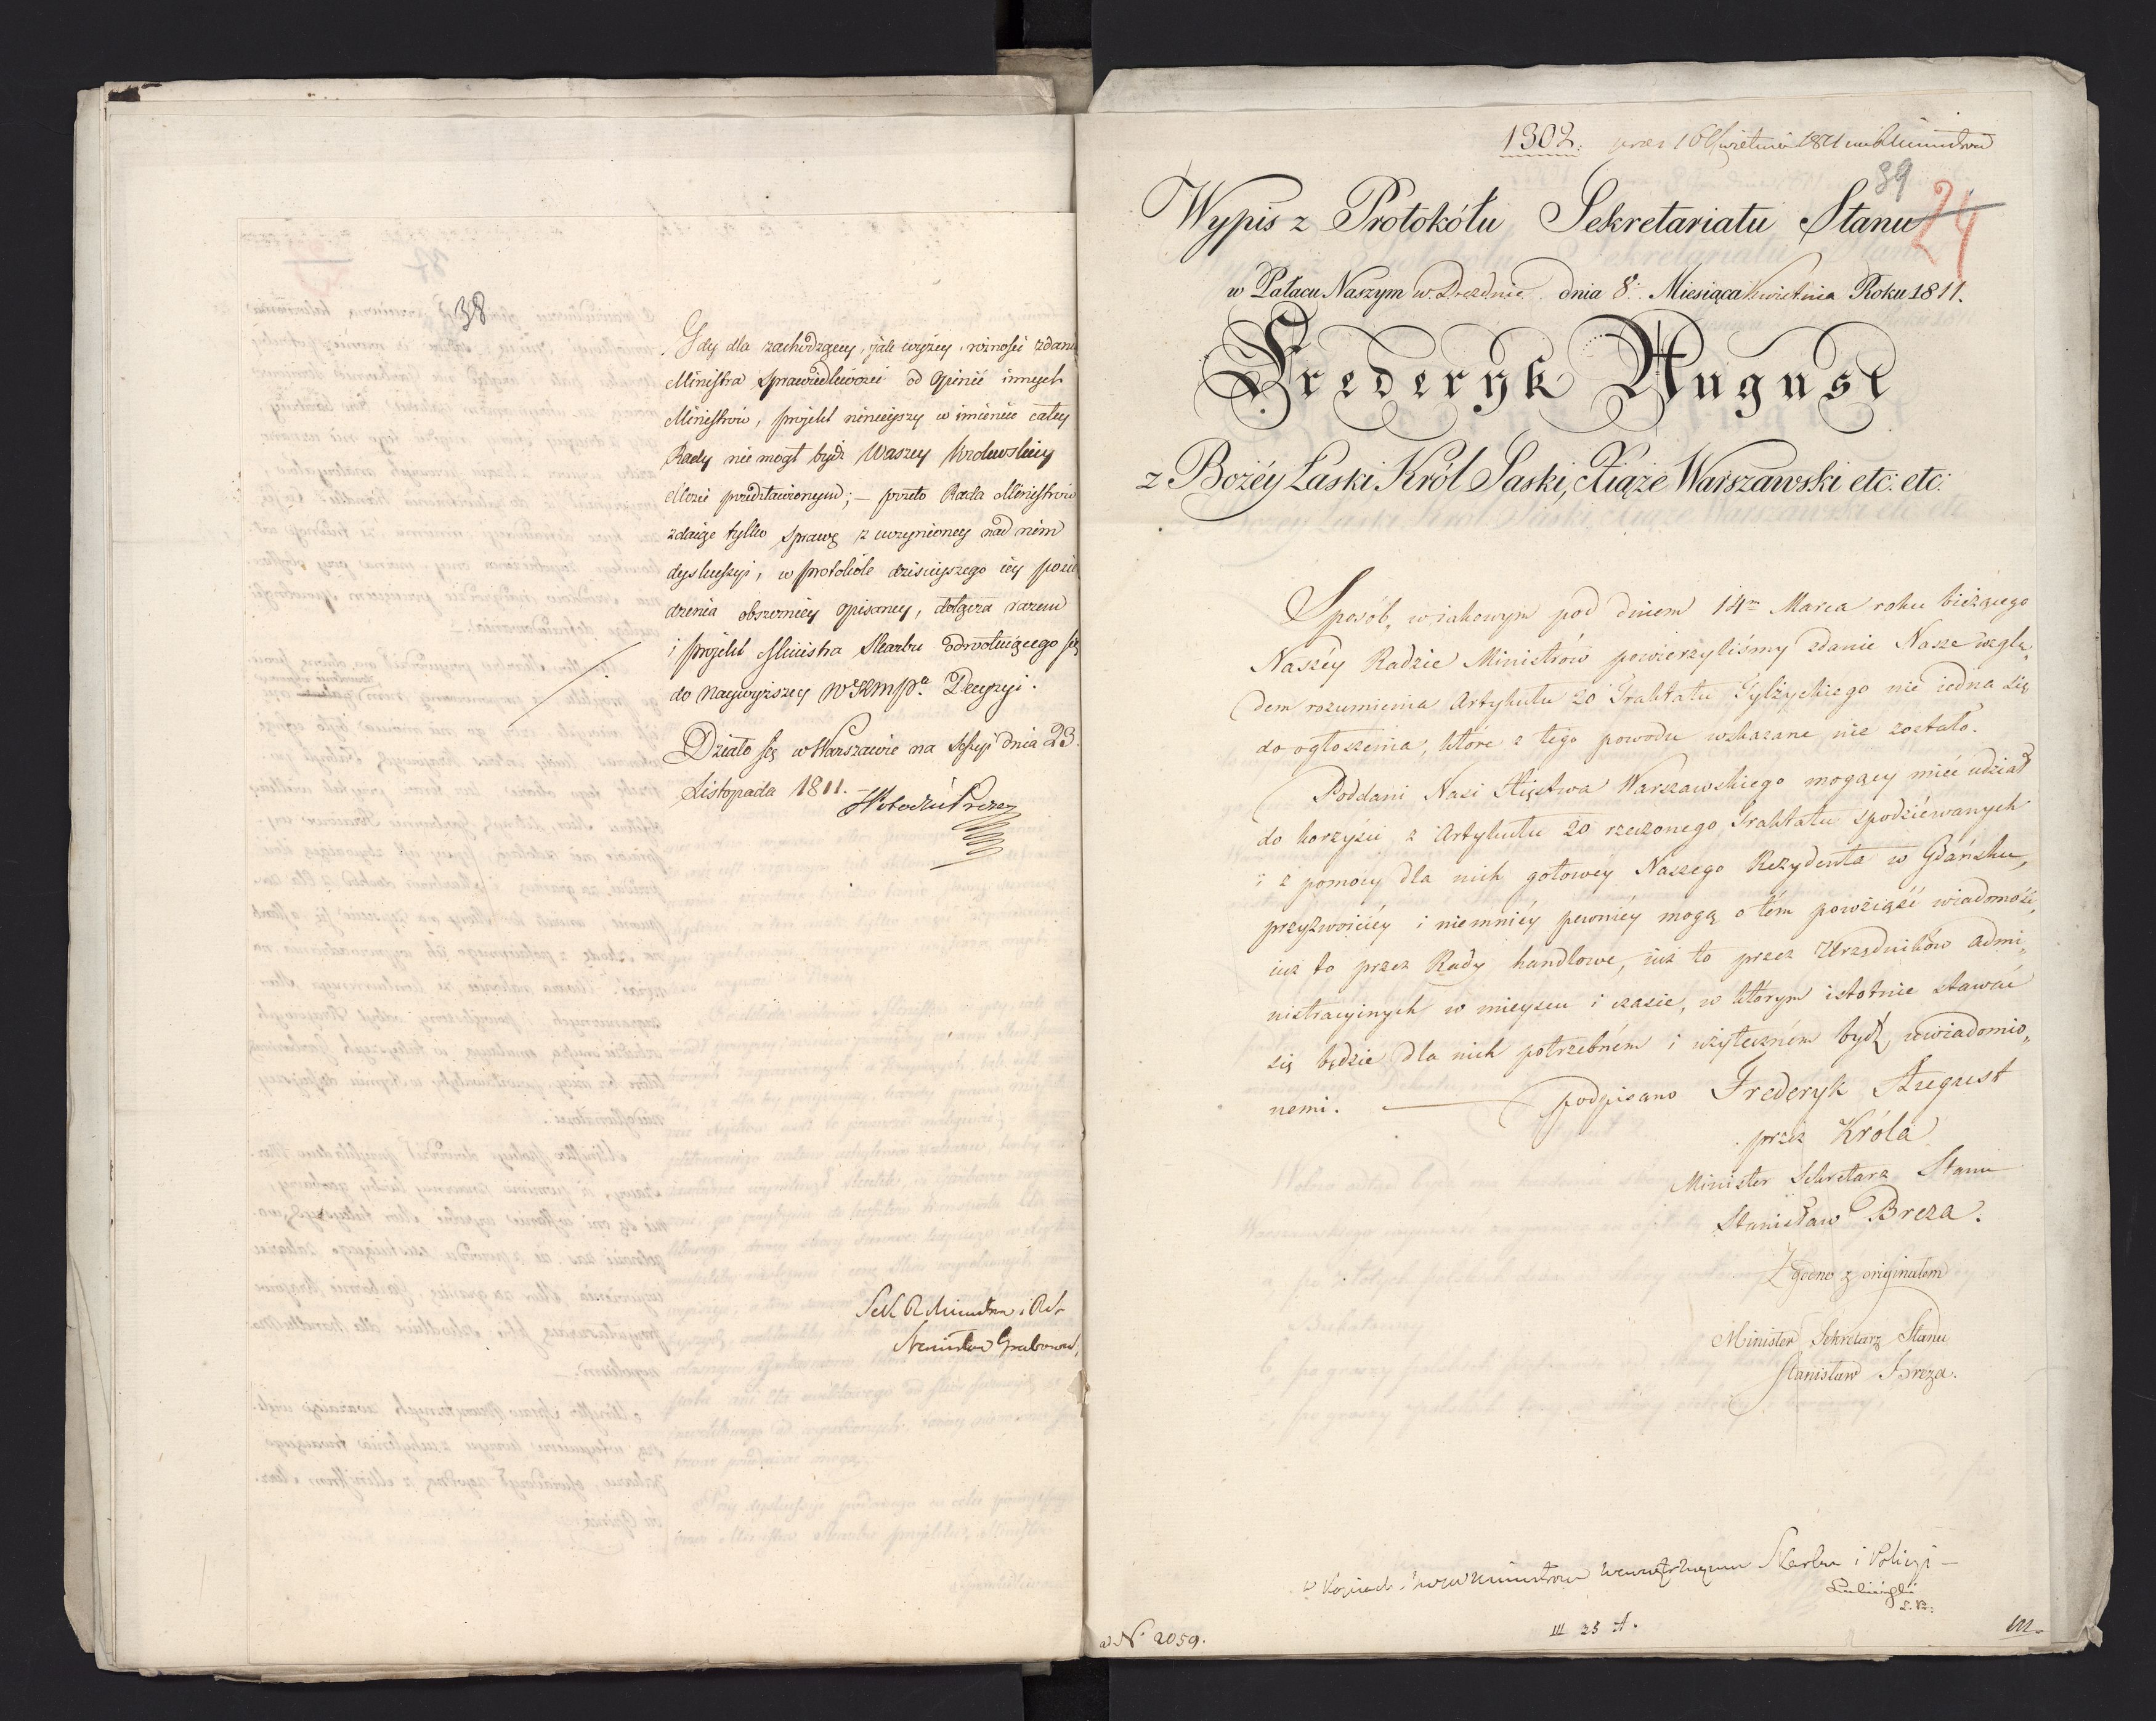 38
Gdy dla zachodzącey, jak wyżey, rożnośći zdani
Ministra Sprawiedliwości od Opinii innych
Ministrów, projekt ninieyszy w imieniu całey
Rady nie mogł bydź Waszey Krolewskiey
Mości przedstawionym; – przeto Rada Ministrów
zdaiąc tylko sprawę z uczynioney nad nim
dyskussyi, w protokóle dzisieyszego iey posie
dzenia obszerniey opisaney, dołącza razem
i projekt Ministra Skarbu odwołuiącego się
do naywyższey WKMści Decyzyi.
Działo się w Warszawie na Sessyi dnia 23.
Listopada 1811.
Sek R Ministrów i R S
Stanisław Grabowski
1302. 16 Kwietnia 1811
39
24
Wypis z Protokółu Sekretariatu Stanu
w Pałacu Naszym w Dreźnie dnia 8. Miesiąca Kwietnia Roku 1811.
Frederyk August
z Bożéy Łaski Król Saski, Xiąże Warszawski etc: etc:
Sposób, w iakowym pod dniem 14m Marca roku bieżącego
Naszéy Radzie Ministrów powierzyliśmy zdanie Nasze wzglę„
dem rozumienia Artykułu 20 Traktatu Tylżyckiego nie iedna się
do ogłoszenia, które z tego powodu wskazane nie zostało.
Poddani Nasi Xięstwa Warszawskiego mogący mieć udział
do korzyści z Artykułu 20 rzeczonego Traktatu spodziéwanych
i z pomocy dla nich gotowey Naszego Rezydenta w Gdańsku,
przyzwoiciéy i niemniéy pewniéy mogą o tém powziąść wiadomość,
iuż to przez Rady handlowe, iuż to przez Urzędników admi„
nistracyinych w mieyscu i czasie, w którym istotnie stawać
się będzie dla nich potrzebném i użyteczném bydź uwiadomio„
nemi. — podpisano Frederyk August
przez Króla
Minister Sekretarz Stanu
Stanisław Breza.
Zgodno z originałem
Minister Sekretarz Stanu
Stanisław Breza.
Skarbu i Policyi –
Lubiński
ad N. 2059.
III 25 A.